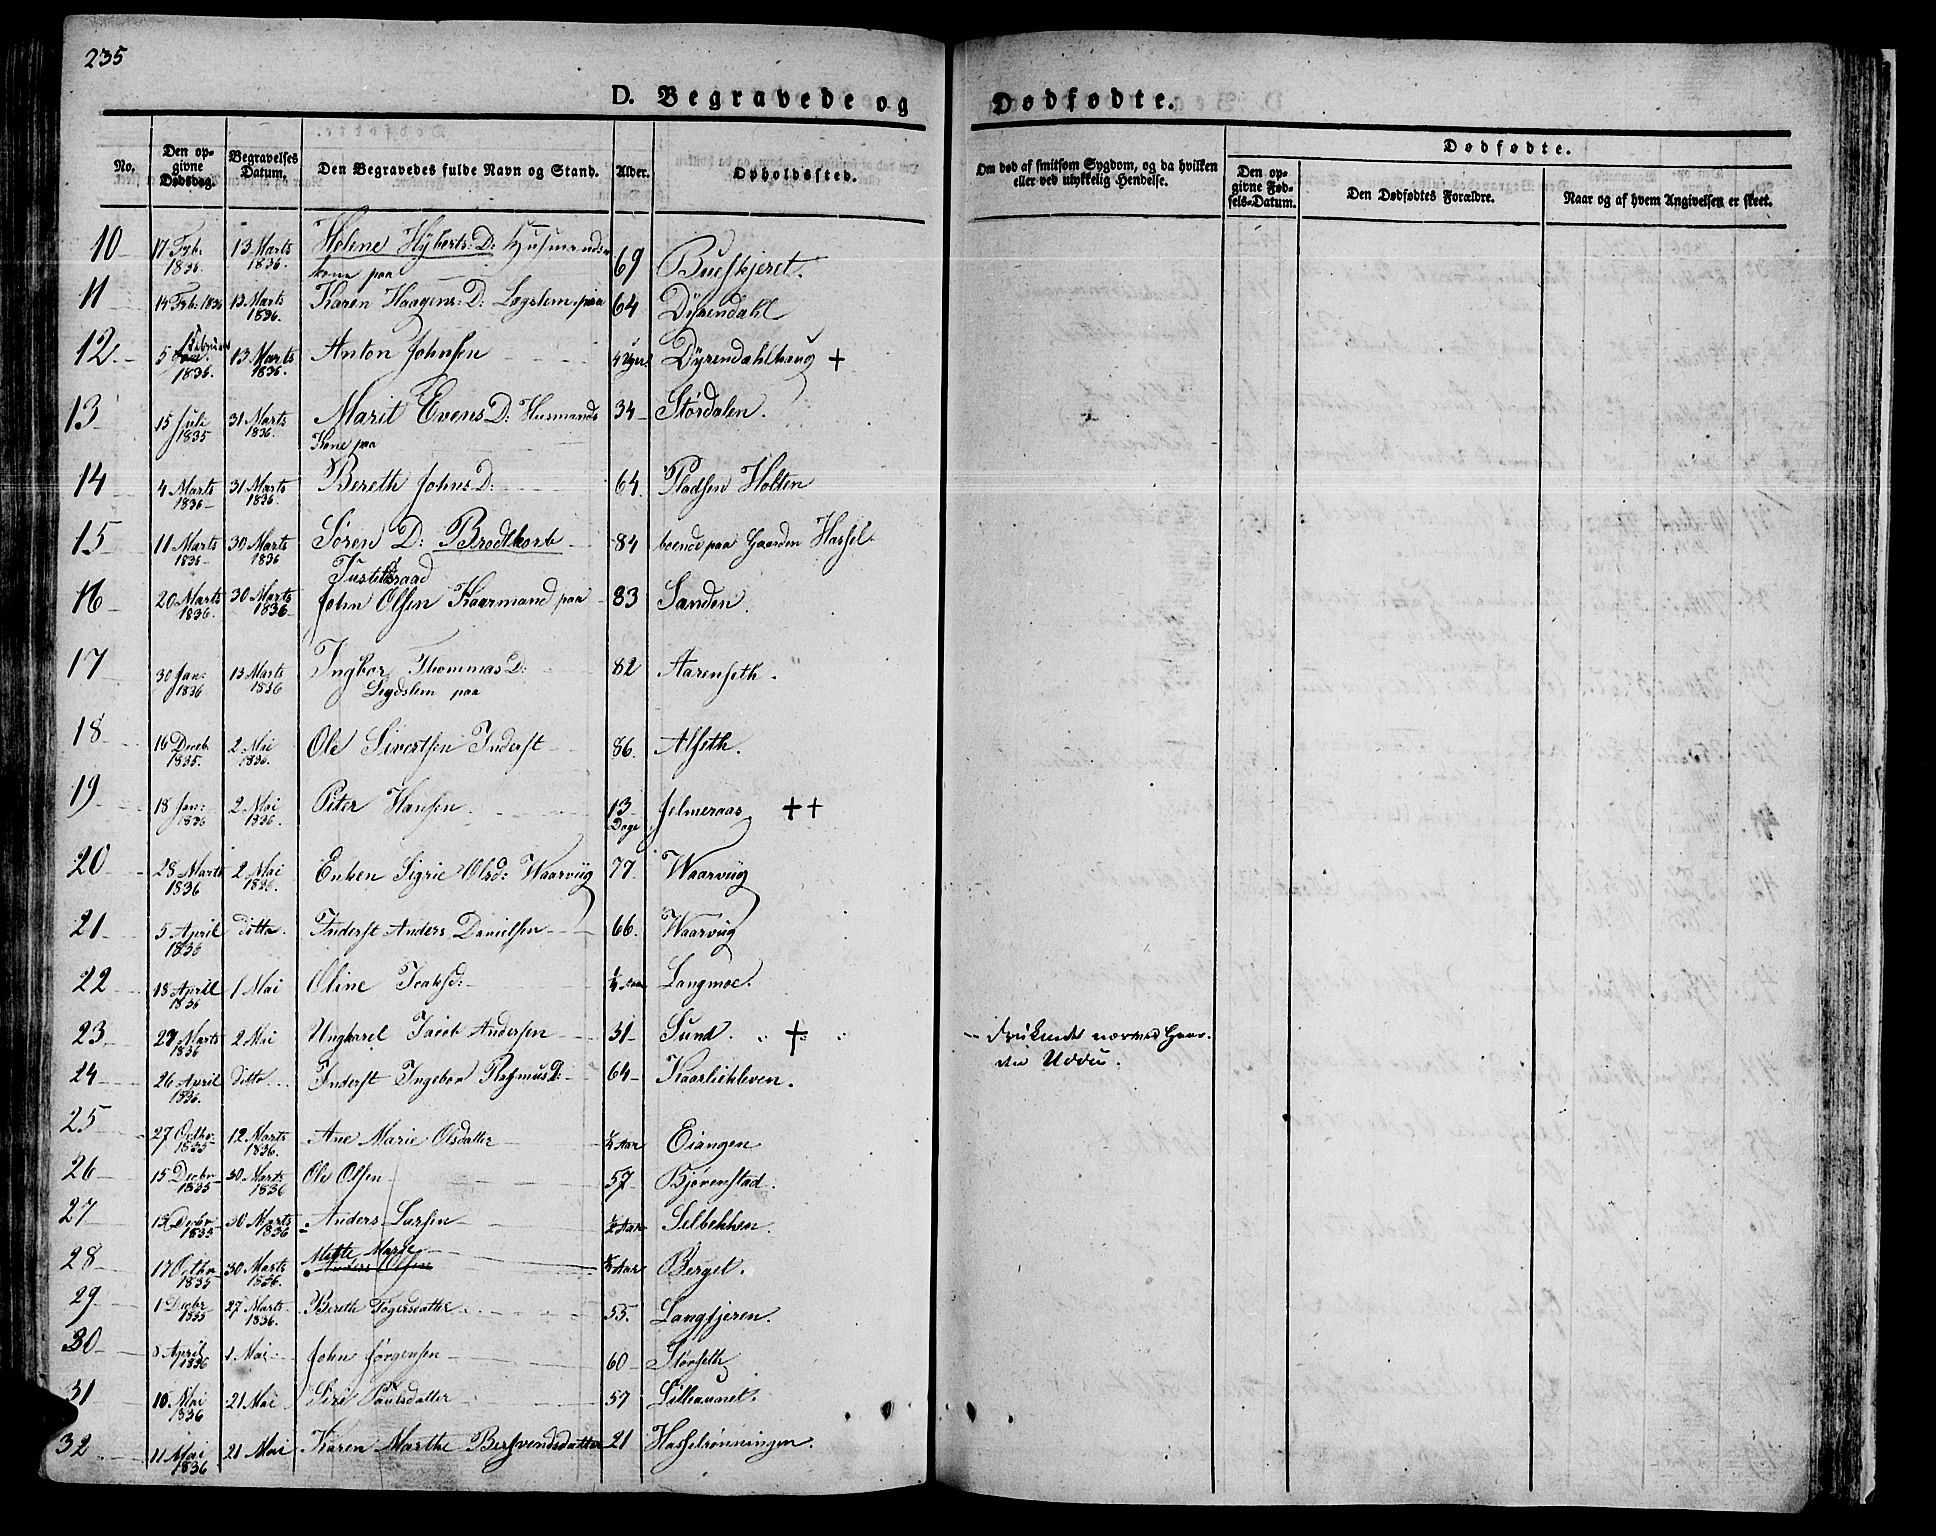 235
D. Begravede og Dødfødte.
No. Den opgivne Dødsdag. Begravelses Datum. Den Begravedes fulde Navn og Stand. Alder. Opholdssted. Om død af smitsom Sygdom, og da hvilken eller ved ulykkelig Hendelse. Dødfødte. Den opgivne Fødsels-Datum. Den Dødfødtes Forældre. Naar og af hvem Angivelsen er skeet.
10 17 Feb: 1836. 13 Marts 1836. Helene Hyberts: D: Husmands
kone paa 69 Buefkjeret.
11 14 Feb: 1836 13 Marts 1836. Karen Haagens: D: Legslem paa 64 Dyrendahl
12 5 Februar 1836. 13 Marts 1836. Anton Johnsen 4 Uger Dyrendahlhaug +
13 15 Juli 1835 31 Marts 1836. Marit Evens D: Husmands 34 Stördalen.
Kone paa
14 4 Marts 1836 31 Marts 1836. Bereth Johns D: 64. Pladsen Holten
15 11 Marts 1836 30 Marts 1836 Sören D: Brodtkorb 84 boende paa Gaarden Hassel
Justitsraad
16 20 Marts 1836. 30 Marts 1836 John Olsen Kaarmand paa 83 Sanden.
17 30 Jan: 1836 13 Marts 1836 Ingbor Thommas D: 82 Aarenseth.
Legdslem paa
18 16 Decb. 1835. 2 Mai 1836. Ole Sivertsen Inderst 86. Alseth.
19 18 Jan: 1836 2 Mai 1836. Peter Hansen 13 Dage Jelmeraas ++
20 28 Marts 1836 2 Mai 1836. Enken Sigrie Olsd: Waarvüg 77 Waarvüg
21 5 April 1836 Ditto. Inderst Anders Danielsen 66. Waarvüg
22 18 April 1836 1 Mai Oline Isaksd: ½ Aar Langmoe.
23 27 Marts 1836 2 Mai Ungkarel Jacob Andersen 31 Sund. + Druknet nærved Gaarden Uddu.
24 26 April 1836. Ditto Inderst Ingebor Rasmus D: 64 Kaarlikleven.
25 27 Octbr. 1835 12 Marts 1836. Ane Marie Olsdatter ½ Aar Eiangen
26 15 Decbr 1835 30 Marts 1836 Ole Olsen 57 Bjørenstad.
27 15 Decbr 1835 30 Marts 1836 Anders Larsen ½ Aar Selbekken
28 17 Octbr 1835 30 Marts 1836. Mette Marie
Anders Olsen ½ Aar Berget.
29 1 Decbr 1835 27 Marts 1836. Bereth Togersdatter 55. Langfjeren.
30 April 1836 1 Mai John Jørgensen 60 Størseth
31 10 Mai 1836 21 Mai Siri Paulsdatter 57
32 11 Mai 1836 21 Mai Karen Marthe Bersvendsdatter 21 Hasselrønningen.